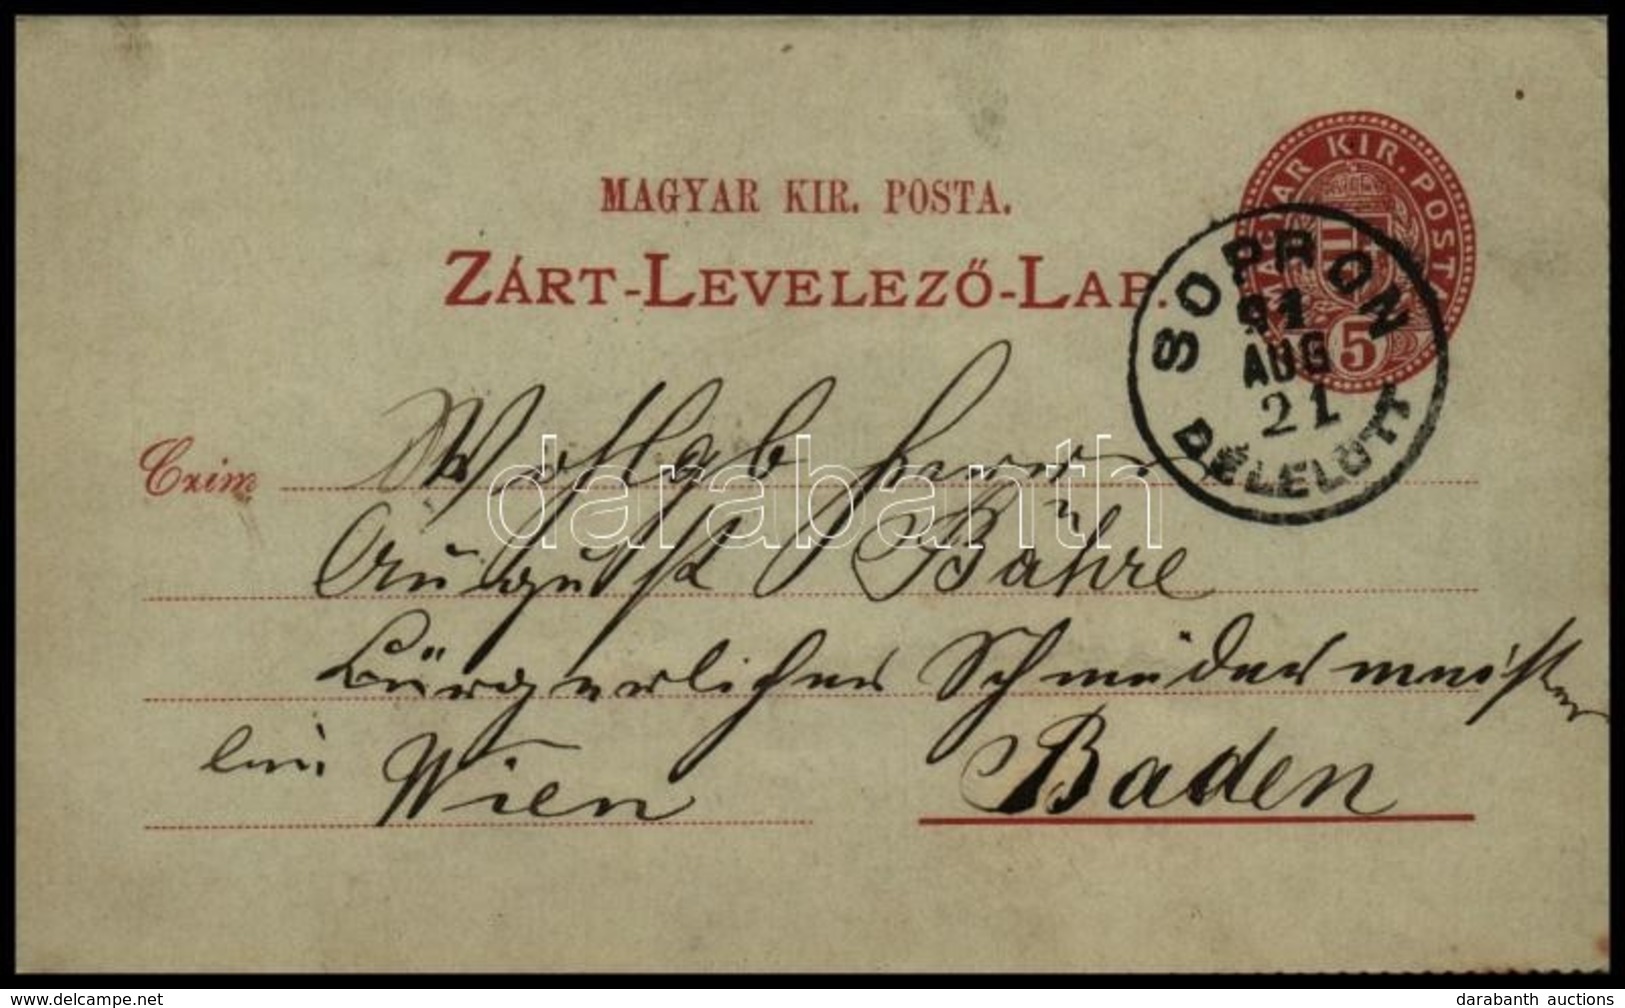 MAGYAR KIR. POSTA.
ZÁRT-LEVELEZŐ-LAP.
MAGYAR KIR. POSTA
5
SOPRON
91
AUG
21
DÉLELŐTT
Czim
Wohlgeb Herrn
August Bähre
Bürgerlicher
bei Wien
Baden
darabanth
delcampe.net
darabanth auctions